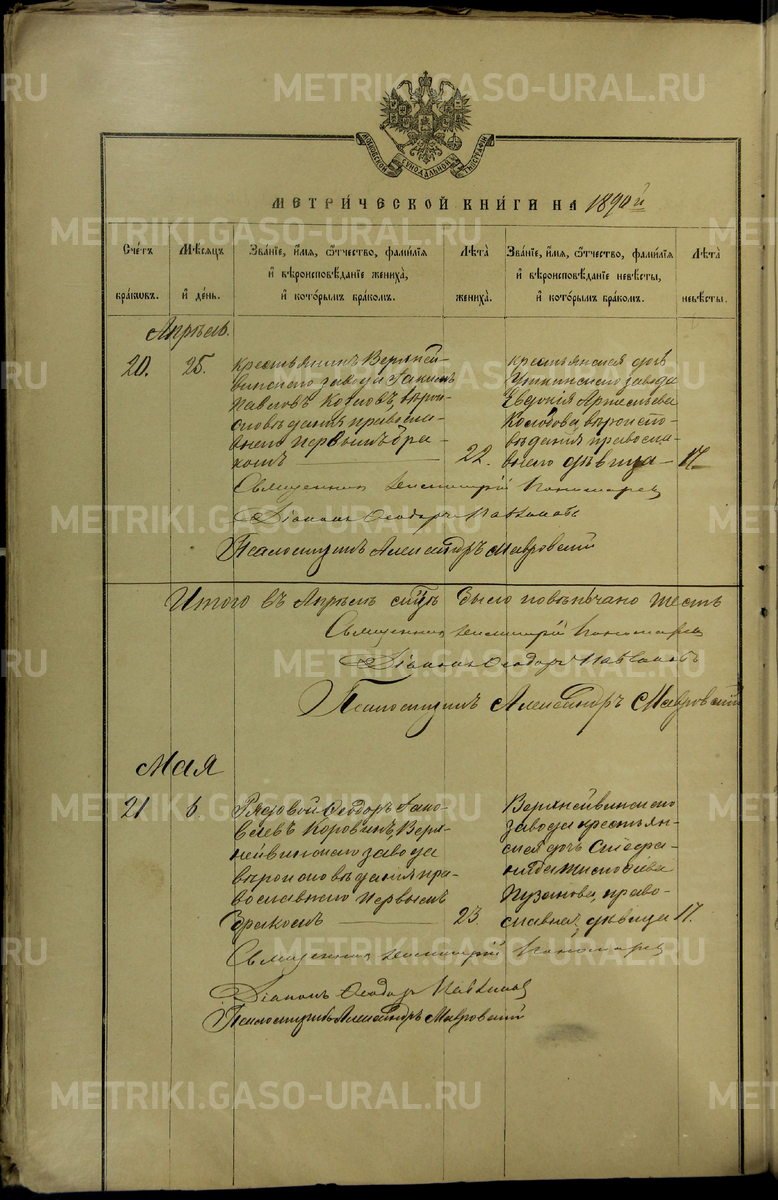 METRIKI.GASO-URAL.RU
МОСКОВСКОЙ СѴНОДАЛЬНОЙ ТИПОГРАФІИ
МЕТРИ́ЧЕСКОЙ КНИ́ГИ НА 1890й
Сче́тъ бра́ковъ.
Мѣ́сяцъ и҆ де́нь.
Зва́нїе, и҆́мѧ, ѻ҆́тчество, фами́лїѧ
и҆ вѣроисповѣ́данїе жениха̀,
и҆ кото́рымъ бра́комъ.
Лѣ́та жениха̀.
Зва́нїе, и҆́мѧ, ѻ҆́тчество, фами́лїѧ
и҆ вѣроисповѣ́данїе невѣ́сты,
и҆ кото́рымъ бра́комъ.
Лѣ́та невѣ́сты.
Апрѣль.
20.
25.
Крестьянинъ Верхней-
винскаго завода Іакимъ
Павловъ Козловъ, вѣрои-
сповѣданія правосла-
внаго первымъ бра-
комъ
22.
Крестьянская дочь
Уткинскаго завода
Евдокія Артемьева
вѣроиспо-
вѣданія правосла-
внаго дѣвица
17.
Священникъ Димитрій Пономаревъ
Діаконъ Ѳеодоръ
Псаломщикъ Александръ Мавровскій
Итого въ Апрѣлѣ мцѣ было повѣнчано шесть
Священникъ Димитрій Пономаревъ
Діаконъ Ѳеодоръ
Псаломщикъ Александръ Мавровскій
Мая
21
6.
Рядовой Ѳеодоръ Іако-
влевъ Коровинъ, Верх-
нейвинскаго завода
вѣроисповѣданія пра-
вославнаго первымъ
бракомъ
23.
Верхнейвинскаго
завода крестьян-
ская дочь Стефа-
нида
Пузанова, право-
славная, дѣвица
17.
Священникъ Димитрій Пономаревъ
Діаконъ Ѳеодоръ
Псаломщикъ Александръ Мавровскій